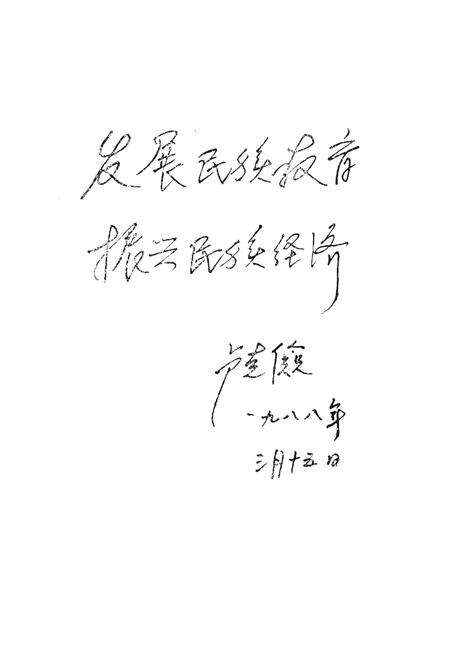 发展民族教育
振兴民族经济
卢克俭
一九八八年
三月十五日